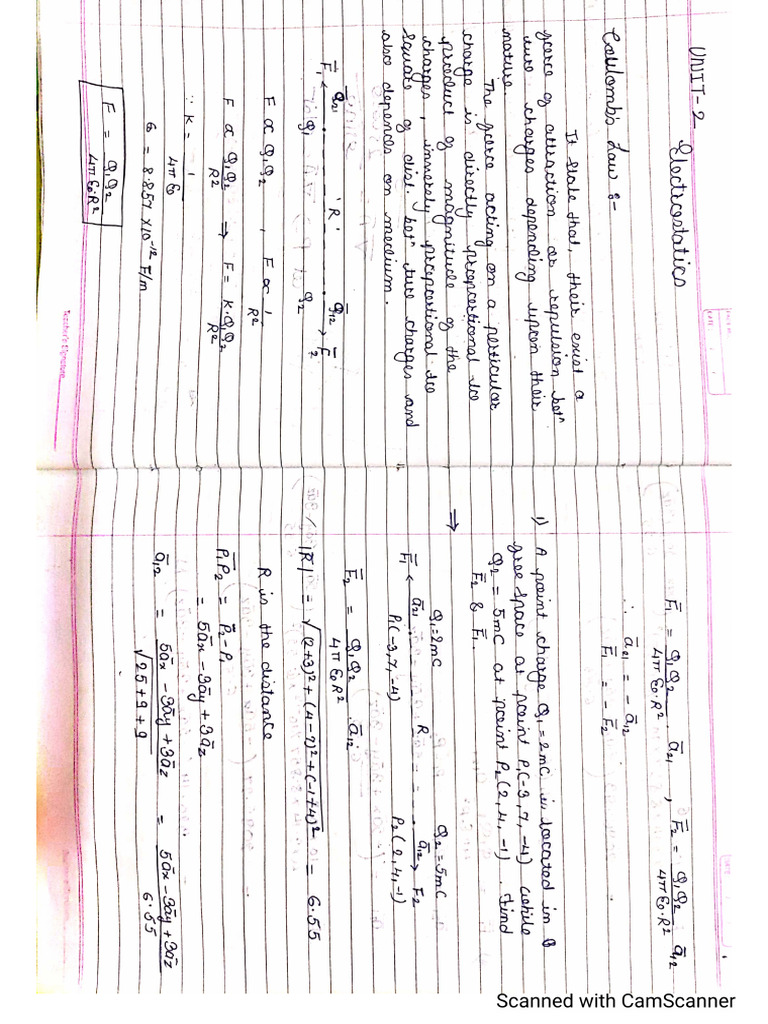 UNIT-2
Electrostatics
Coulomb's Law :-
It state that, their exist a
force of attraction or repulsion betⁿ
two charges depending upon their
nature.
The force acting on a perticular
charge is directly proportional to
product of magnitude of the
charges, inversly proportional to
square of dist. betⁿ two charges and
also depends on medium.
F̄₁ ← ā₂₁ 'R' ā₁₂ → F̄₂
Q₁ Q₂
F ∝ Q₁Q₂ , F ∝ 1/R²
F ∝ Q₁Q₂/R² ⇒ F = k·Q₁Q₂/R²
∵ k = 1/4π ε₀
ε = 8.857 × 10⁻¹² F/m
F = Q₁Q₂/4π ε₀·R²
Teacher's Signature
F̄₁ = Q₁Q₂/4π ε₀·R² ā₂₁ , F̄₂ = Q₁Q₂/4π ε₀·R² ā₁₂
∴ ā₂₁ = − ā₁₂
F̄₁ = − F̄₂
1) A point charge Q₁ = 2mC is located in
free space at point P₁(-3, 7, -4) while
Q₂ = 5mC at point P₂(2, 4, -1). Find
F̄₂ & F̄₁.
⇒
Q₁=2mC Q₂=5mC
F̄₁ ← ā₂₁ R ā₁₂ → F₂
P₁(-3,7,-4) P₂(2,4,-1)
F̄₂ = Q₁Q₂/4π ε₀R² . ā₁₂
|R̄| = √(2+3)² + (4-7)² + (-1+4)² = 6.55
R is the distance
P₁P₂ = P̄₂ - P₁
= 5āx - 3āy + 3āz
ā₁₂ = 5āx - 3āy + 3āz/√25+9+9 = 5āx - 3āy + 3āz/6.55
Scanned with CamScanner